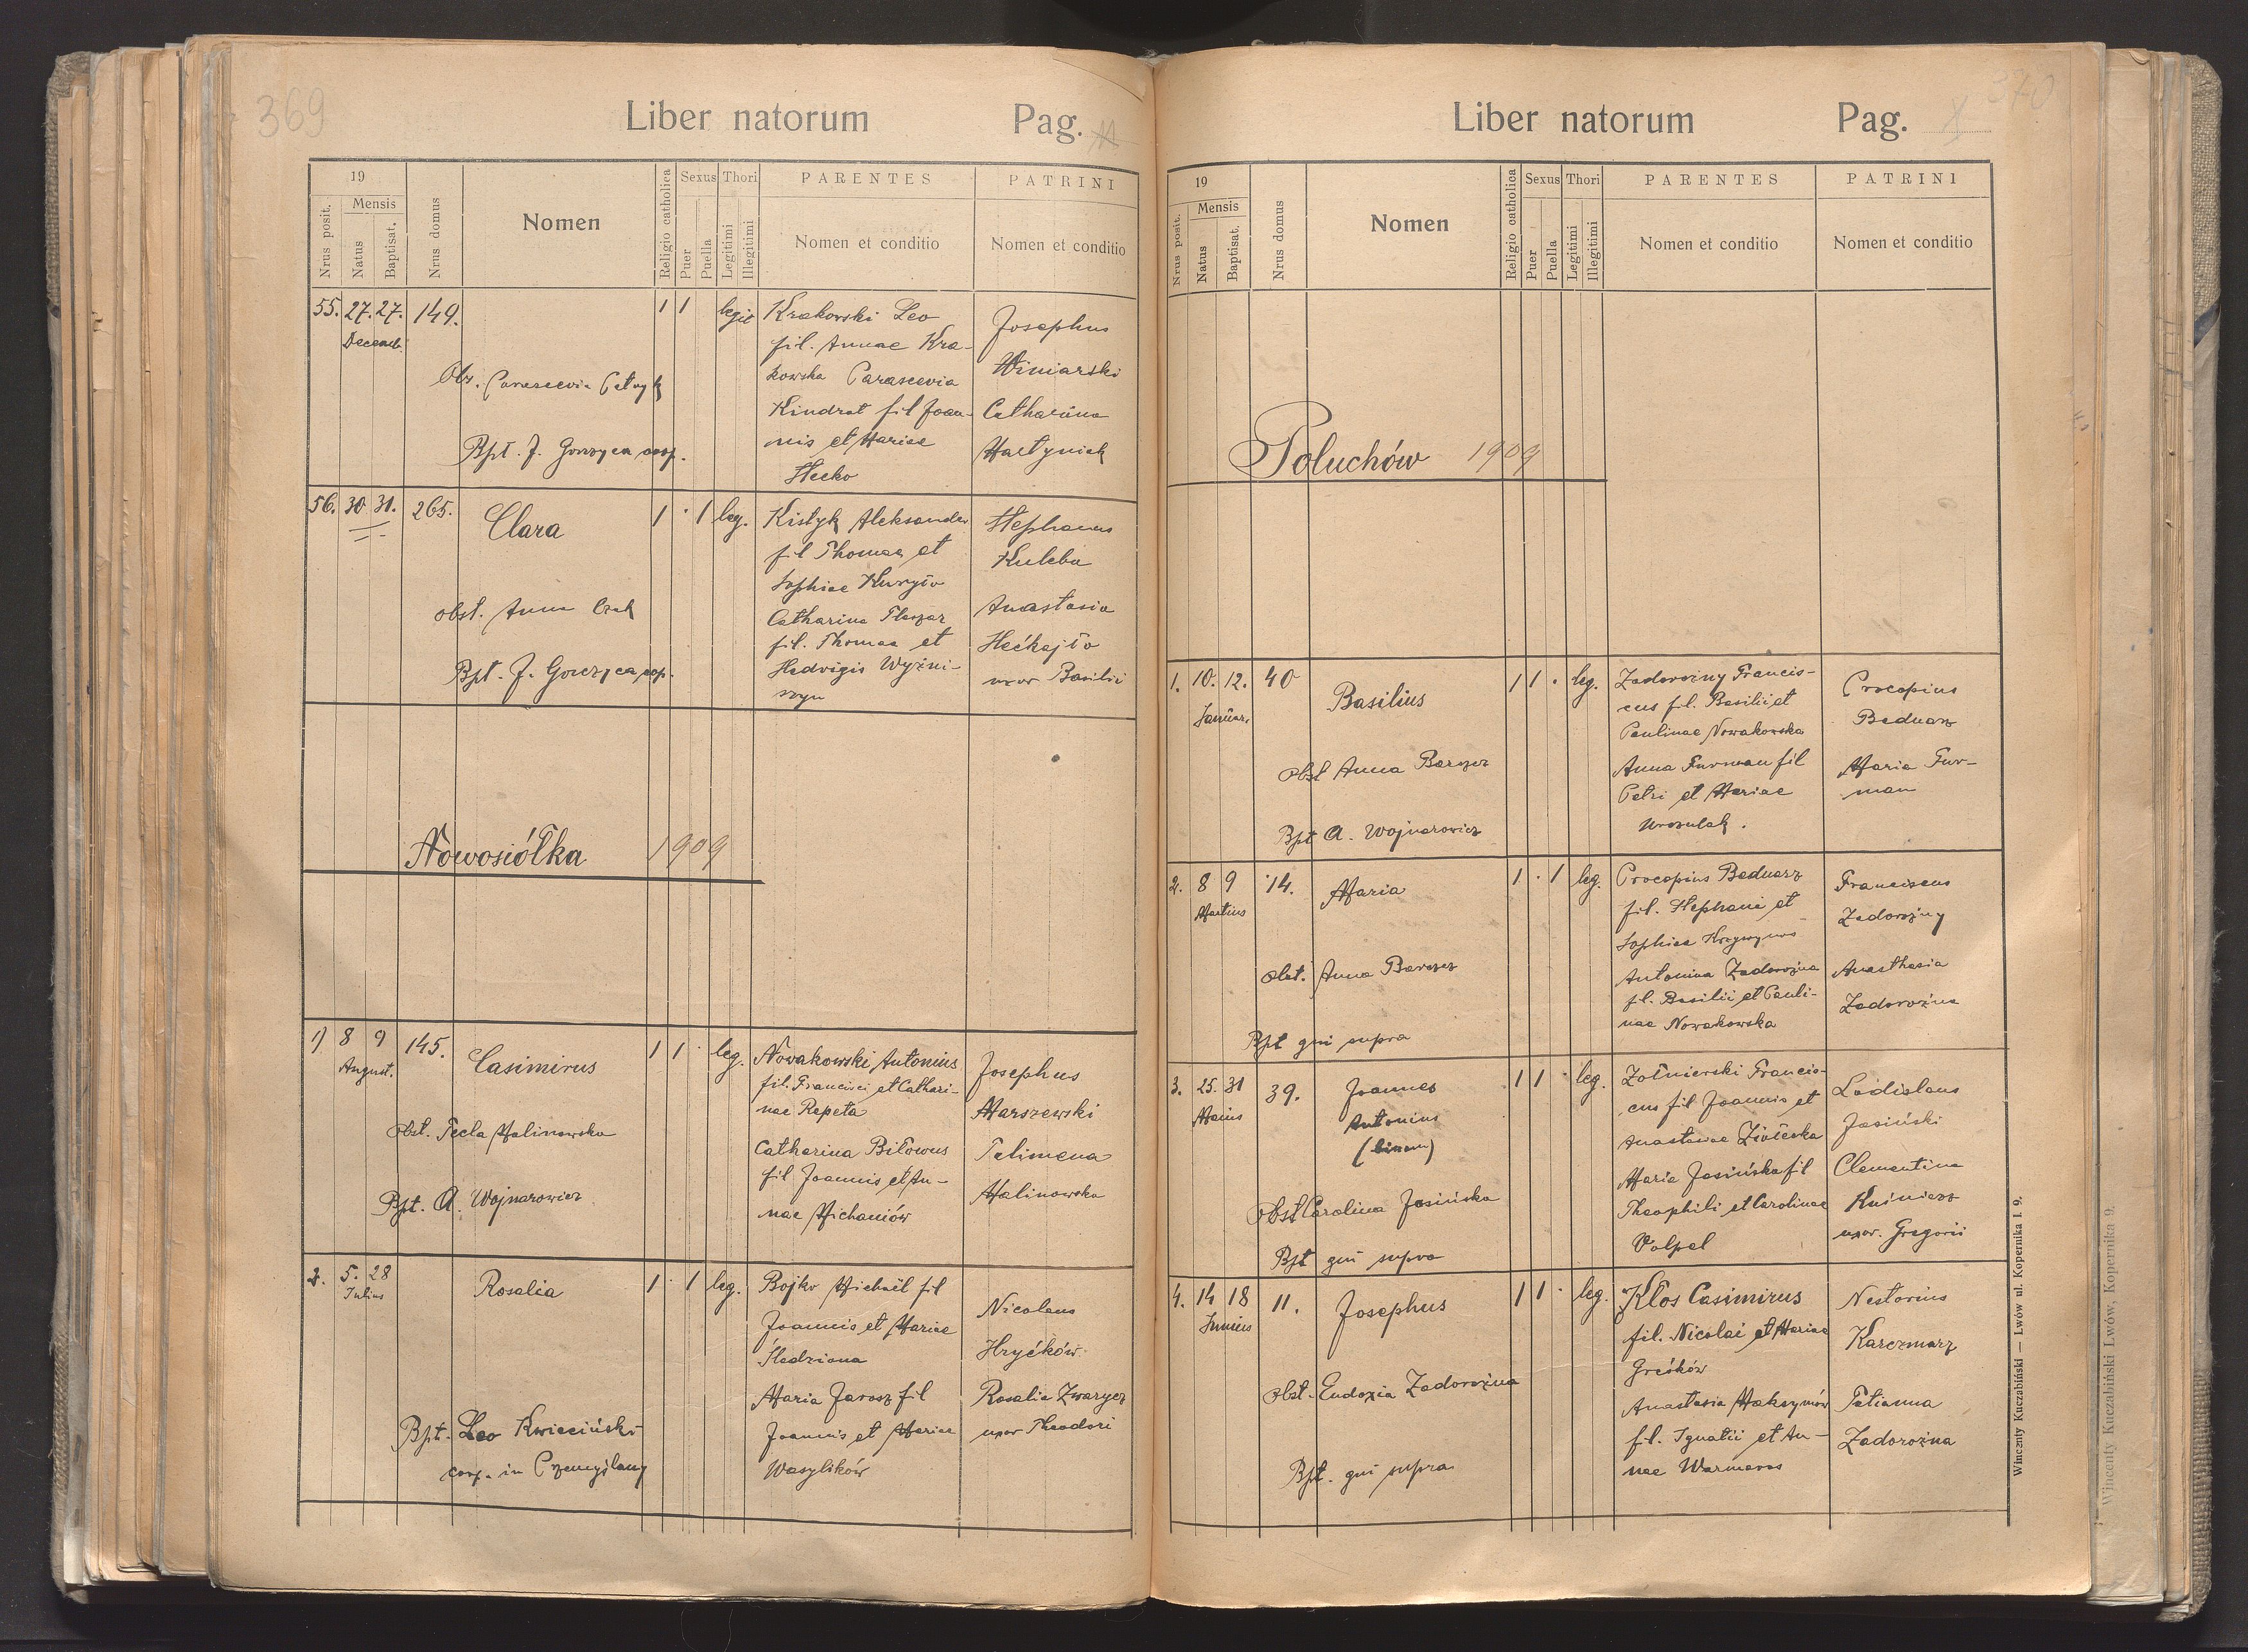 369
Liber natorum Pag.
19
Mensis
Nrus posit.
Natus
Baptisat.
Nrus domus
Nomen
Religio catholica
Sexus
Puer
Puella
Thori
Legitimi
Illegitimi
PARENTES
Nomen et conditio
PATRINI
Nomen et conditio
55. 27. 27. 149. 1 1 legit
Decemb.
Obs. Parascevia Petryk
Bpt. J. Gorzyca coop.
Krakowski Leo
fil. Annae Kra-
kowska Parascevia
Kindrat fil Joan-
nis et Mariae
Hecko
Josephus
Winiarski
Catharina
Martyniak
56. 30 31. 265. Clara 1 · 1 leg.
obst. Anna
Bpt. J. Gorzyca cop.
Kistyk Aleksander
fil Thomae et
Sophiae Kuryło
Catharina
fil. Thomae et
Hedvigis Wyżni-
Stephanus
Kuleba
Anastasia
uxor Basilii
Nowosiółka 1909
1) 8 9 145. Casimirus 1 1 · leg.
August.
Obst. Tecla Malinowska
Bpt. A. Wojnarowicz
Nowakowski Antonius
fil. Francisci et Cathari-
nae Repeta
Catharina Biłowus
fil Joannis et An-
nae Michaniów
Josephus
Marszewski
Telimena
Malinowska
2. 5. 28 Rosalia 1 · 1 leg.
Julius
Bpt. Leo Kwieciński
coop. in Przemyślany
Bojko Michaël fil
Joannis et Mariae
Śledziona
Maria Jarosz fil
Joannis et Mariae
Wasylików
Nicolaus
Hryćków
Rosalia Zwarycz
uxor Theodori
370
Liber natorum Pag.
19
Mensis
Nrus posit.
Natus
Baptisat.
Nrus domus
Nomen
Religio catholica
Sexus
Puer
Puella
Thori
Legitimi
Illegitimi
PARENTES
Nomen et conditio
PATRINI
Nomen et conditio
Poluchów 1909
1. 10. 12. 40 Basilius 1 1 · leg.
Januar.
Obst Anna Barszcz
Bpt A. Wojnarowicz
Zadorożny Francis-
cus fil. Basilii et
Paulinae Nowakowska
Anna Furman fil
Petri et Mariae
Urszulak.
Procopius
Bednarz
Maria Fur-
man
2. 8 9 14. Maria 1 · 1 leg.
Martius
Obst. Anna Barszcz
Bpt qui supra
Procopius Bednarz
fil. Stephani et
Sophiae
Antonina Zadorożna
fil. Basilii et Pauli-
nae Nowakowska
Franciscus
Zadorożny
Anasthasia
Zadorożna
3. 25. 31 39. Joannes 1 1 · leg.
Maius
Antonius
(binom)
Obst Carolina Jasińska
Bpt qui supra
Żołnierski Francis-
cus fil Joannis et
Anastasiae
Maria Jasińska fil
Theophili et Carolinae
Volpel
Ladislaus
Jasiński
Clementina
Kuśnierz
uxor. Gregorii
4. 14 18 11. Josephus 1 1 · leg.
Junius
obst. Eudoxia Zadorożna
Bpt. qui supra
Kłos Casimirus
fil. Nicolai et Mariae
Greśków
Anastasia Maksymów
fil. Ignatii et An-
nae Warmaros
Nestorius
Karczmarz
Tatianna
Zadorożna
Wincenty Kuczabiński — Lwów ul. Kopernika l. 9.
Wincenty Kuczabiński Lwów, Kopernika 9.